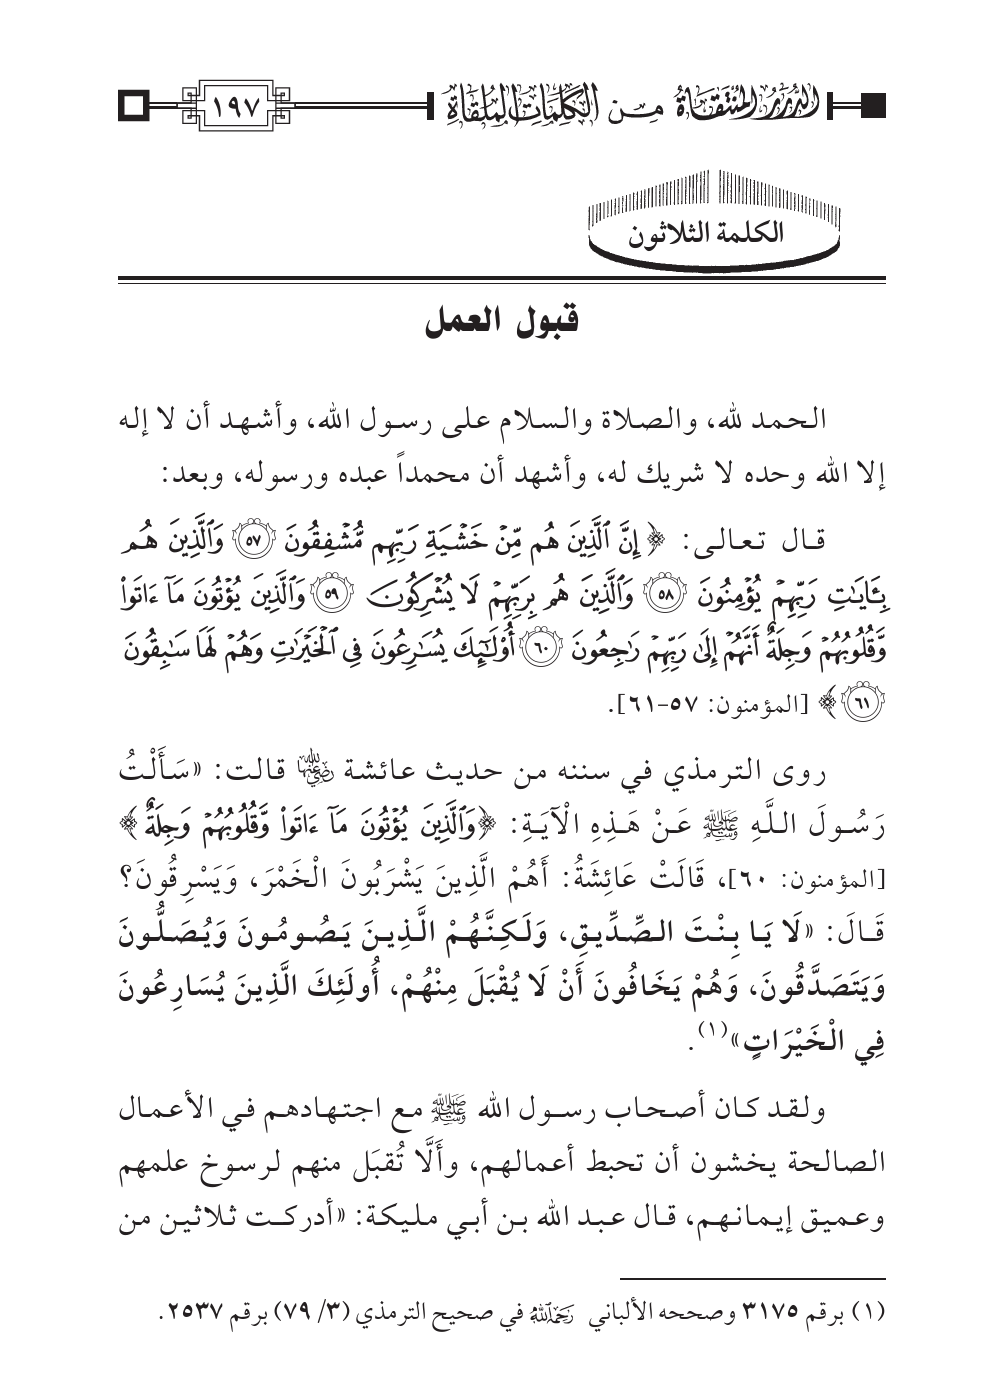 الدُّرَرُ المُنْتَقَاةُ مِنَ الكَلِمَاتِ المُلْقَاةِ ١٩٧
الكلمة الثلاثون
قبول العمل
الحمد لله، والصلاة والسلام على رسول الله، وأشهد أن لا إله
إلا الله وحده لا شريك له، وأشهد أن محمداً عبده ورسوله، وبعد:
قال تعالى: ﴿ إِنَّ ٱلَّذِينَ هُم مِّنْ خَشْيَةِ رَبِّهِم مُّشْفِقُونَ ﴿٥٧﴾ وَٱلَّذِينَ هُم
بِـَٔايَٰتِ رَبِّهِمْ يُؤْمِنُونَ ﴿٥٨﴾ وَٱلَّذِينَ هُم بِرَبِّهِمْ لَا يُشْرِكُونَ ﴿٥٩﴾ وَٱلَّذِينَ يُؤْتُونَ مَآ ءَاتَوا۟
وَّقُلُوبُهُمْ وَجِلَةٌ أَنَّهُمْ إِلَىٰ رَبِّهِمْ رَٰجِعُونَ ﴿٦٠﴾ أُو۟لَٰٓئِكَ يُسَٰرِعُونَ فِى ٱلْخَيْرَٰتِ وَهُمْ لَهَا سَٰبِقُونَ
﴿٦١﴾ ﴾ [المؤمنون: ٥٧-٦١].
روى الترمذي في سننه من حديث عائشة رضي الله عنها قالت: «سَأَلْتُ
رَسُولَ اللَّهِ ﷺ عَنْ هَذِهِ الْآيَةِ: ﴿وَٱلَّذِينَ يُؤْتُونَ مَآ ءَاتَوا۟ وَّقُلُوبُهُمْ وَجِلَةٌ﴾
[المؤمنون: ٦٠]، قَالَتْ عَائِشَةُ: أَهُمْ الَّذِينَ يَشْرَبُونَ الْخَمْرَ، وَيَسْرِقُونَ؟
قَالَ: «لَا يَا بِنْتَ الصِّدِّيقِ، وَلَكِنَّهُمْ الَّذِينَ يَصُومُونَ وَيُصَلُّونَ
وَيَتَصَدَّقُونَ، وَهُمْ يَخَافُونَ أَنْ لَا يُقْبَلَ مِنْهُمْ، أُولَئِكَ الَّذِينَ يُسَارِعُونَ
فِي الْخَيْرَاتِ»(١).
ولقد كان أصحاب رسول الله ﷺ مع اجتهادهم في الأعمال
الصالحة يخشون أن تحبط أعمالهم، وأَلَّا تُقبَل منهم لرسوخ علمهم
وعميق إيمانهم، قال عبد الله بن أبي مليكة: «أدركت ثلاثين من
(١) برقم ٣١٧٥ وصححه الألباني رحمه الله في صحيح الترمذي (٣/ ٧٩) برقم ٢٥٣٧.